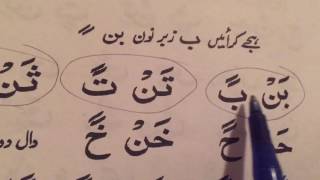 ہجے کرائیں ب زبر نون بن ـً
بَنْ بً تَنْ تً ثَنْ
حً خَنْ خً دال دو